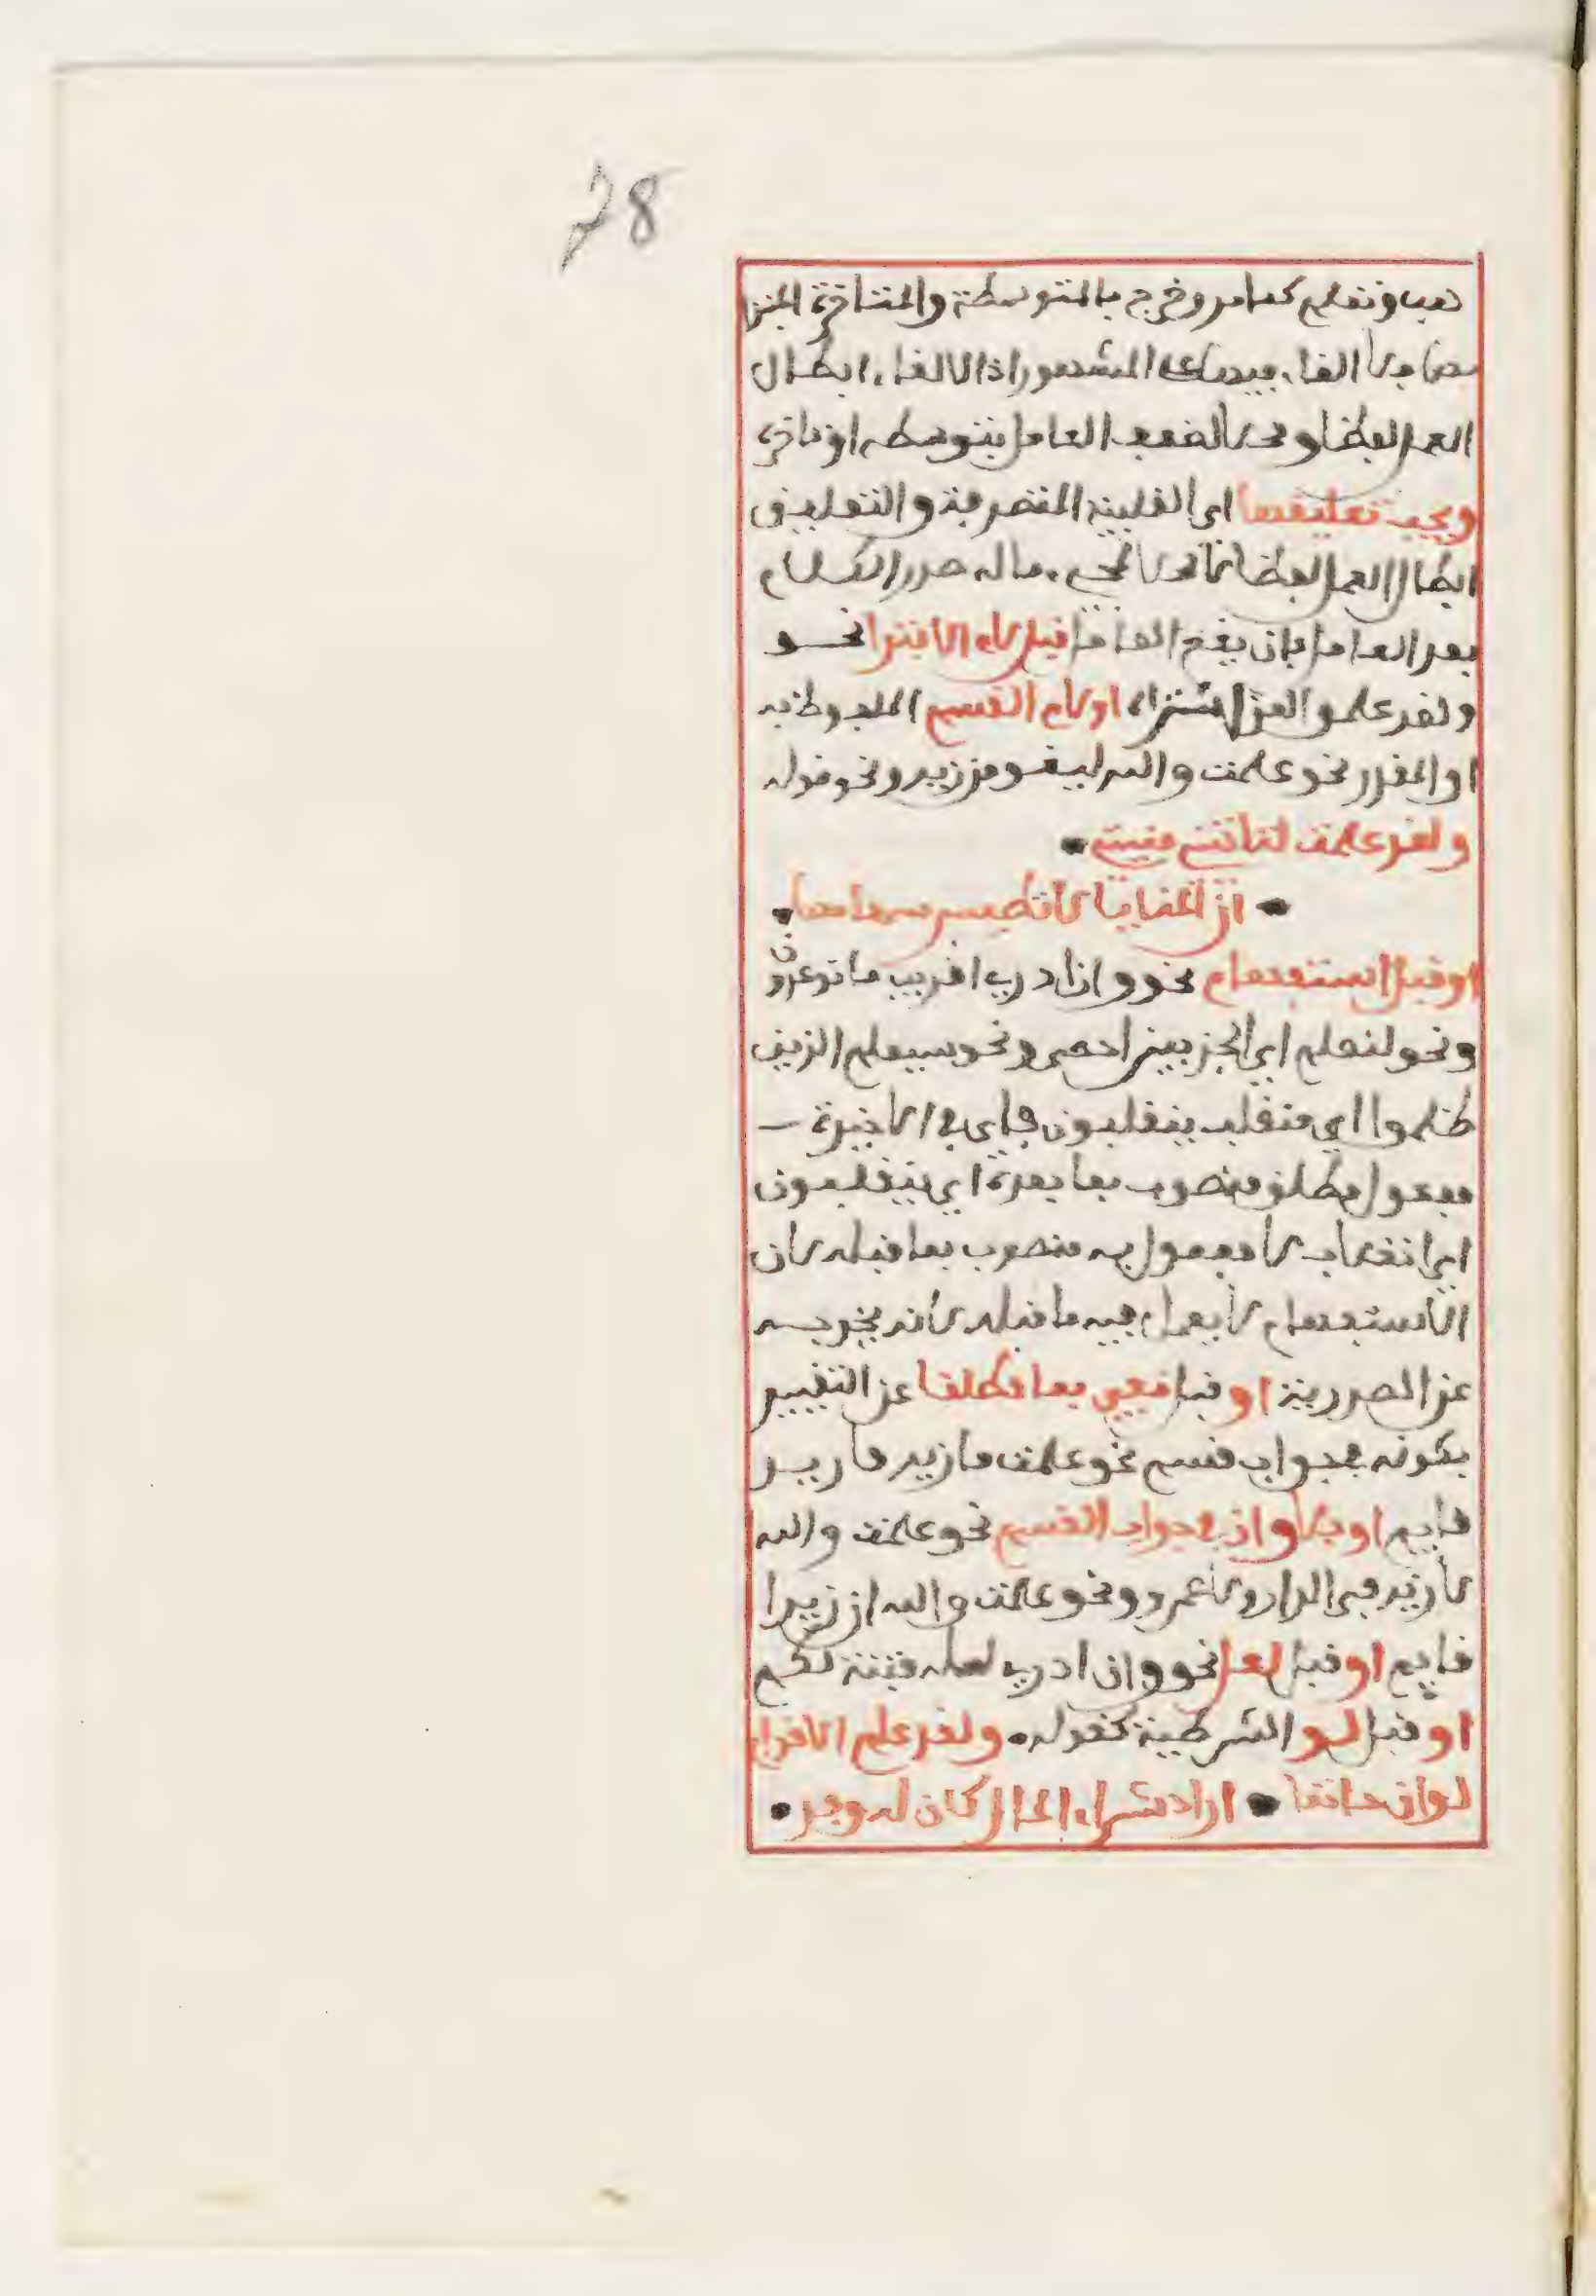 28
هب وتعلم كما مر وخرج بالمتوسطة والمتاخرة المتقدمة
فلا الغاء فيها على المشهور اذ الالغاء ابطال
العمل لفظا ومحلا لضعف العامل بتوسطه او تاخره
ويجب تعليقها اي القلبية المتصرفة والتعليق
ابطال العمل لفظا لا محلا لمجيء ماله صدر الكلام
بعد العامل بان يقع العامل قبل لام الابتدا نحو
ولقد علموا لمن اشتراه او لام القسم الملفوظ به
او المقدر نحو علمت والله ليقومن زيد ونحو قوله
ولقد علمت لتاتين منيتي
ان المنايا لا تطيش سهامها
او قبل استفهام نحو وان ادري اقريب ما توعدون
ونحو لنعلم اي الحزبين احصى ونحو سيعلم الذين
ظلموا اي منقلب ينقلبون فاي في الاخيرة
مفعول مطلق منصوب بما بعده اي ينقلبون
اي انقلاب لا مفعول به منصوب بما قبله لان
الاستفهام لا يعمل فيه ما قبله لانه يخرجه
عن الصدرية او قبل نفي بما مطلقا عن التقييد
بكونه في جواب قسم نحو علمت ما زيد ما زيد
قايم او بلا وان في جواب القسم نحو علمت والله
لا زيد في الدار ولا عمرو ونحو علمت والله ان زيدا
قايم او قبل لعل نحو وان ادري لعله فتنة لكم
او قبل لو الشرطية كقوله ولقد علم الاقوام
لو ان حاتما اراد ثراء المال كان له وفر